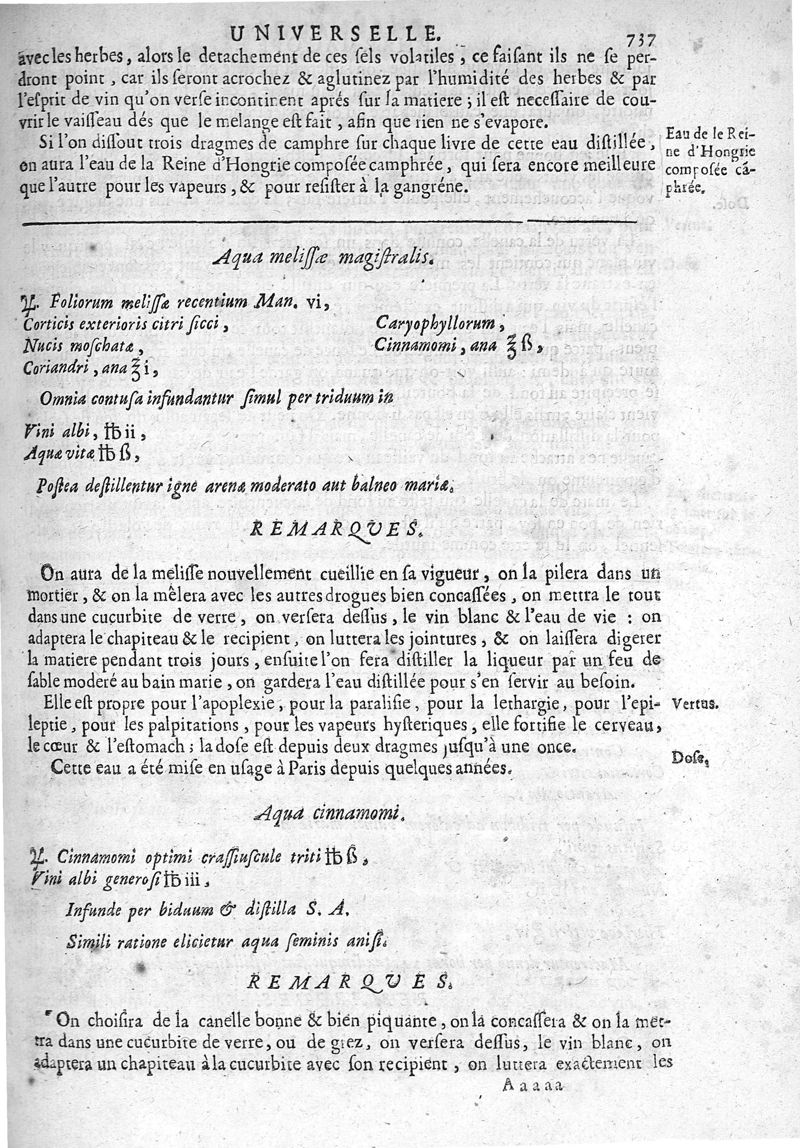 UNIVERSELLE. 737
avec les herbes, alors le detachement de ces ſels volatiles, ce faiſant ils ne ſe per-
dront point, car ils ſeront acrochez & aglutinez par l'humidité des herbes & par
l'eſprit de vin qu'on verſe incontinent aprés ſur la matiere ; il eſt neceſſaire de cou-
vrir le vaiſſeau dés que le melange eſt fait, afin que rien ne s'evapore.
Si l'on diſſout trois dragmes de camphre ſur chaque livre de cette eau diſtillée,
on aura l'eau de la Reine d'Hongrie compoſée camphrée, qui ſera encore meilleure
que l'autre pour les vapeurs, & pour reſiſter à la gangréne.
Eau de le Rei-
ne d'Hongrie
compoſée cã-
phrée.
Aqua meliſſæ magiſtralis.
♃. Foliorum meliſſæ recentium Man. vi,
Corticis exterioris citri ſicci,
Nucis moſchatæ,
Coriandri, ana ℥ i,
Caryophyllorum,
Cinnamomi, ana ℥ ß,
Omnia contuſa infundantur ſimul per triduum in
Vini albi, ℔ ii,
Aquæ vitæ ℔ ß,
Poſtea deſtillentur igne arenæ moderato aut balneo mariæ.
REMARQVES.
On aura de la méliſſe nouvellement cueillie en ſa vigueur, on la pilera dans un
mortier, & on la mêlera avec les autres drogues bien concaſſées, on mettra le tout
dans une cucurbite de verre, on verſera deſſus, le vin blanc & l'eau de vie : on
adaptera le chapiteau & le recipient, on luttera les jointures, & on laiſſera digerer
la matiere pendant trois jours, enſuite l'on fera diſtiller la liqueur par un feu de
ſable moderé au bain marie, on gardera l'eau diſtillée pour s'en ſervir au beſoin.
Elle eſt propre pour l'apoplexie, pour la paraliſie, pour la lethargie, pour l'epi-
leptie, pour les palpitations, pour les vapeurs hyſteriques, elle fortifie le cerveau,
le cœur & l'eſtomach ; la doſe eſt depuis deux dragmes juſqu'à une once.
Cette eau a été miſe en uſage à Paris depuis quelques années.
Vertus.
Doſe,
Aqua cinnamomi.
♃. Cinnamomi optimi craſſiuſcule triti ℔ ß,
Vini albi generoſi ℔ iii,
Infunde per biduum & diſtilla S. A.
Simili ratione elicietur aqua ſeminis aniſi.
REMARQVES.
On choiſira de la canelle bonne & bien piquante, on la concaſſera & on la met-
tra dans une cucurbite de verre, ou de grez, on verſera deſſus, le vin blanc, on
adaptera un chapiteau à la cucurbite avec ſon recipient, on luttera exactement les
Aaaaa